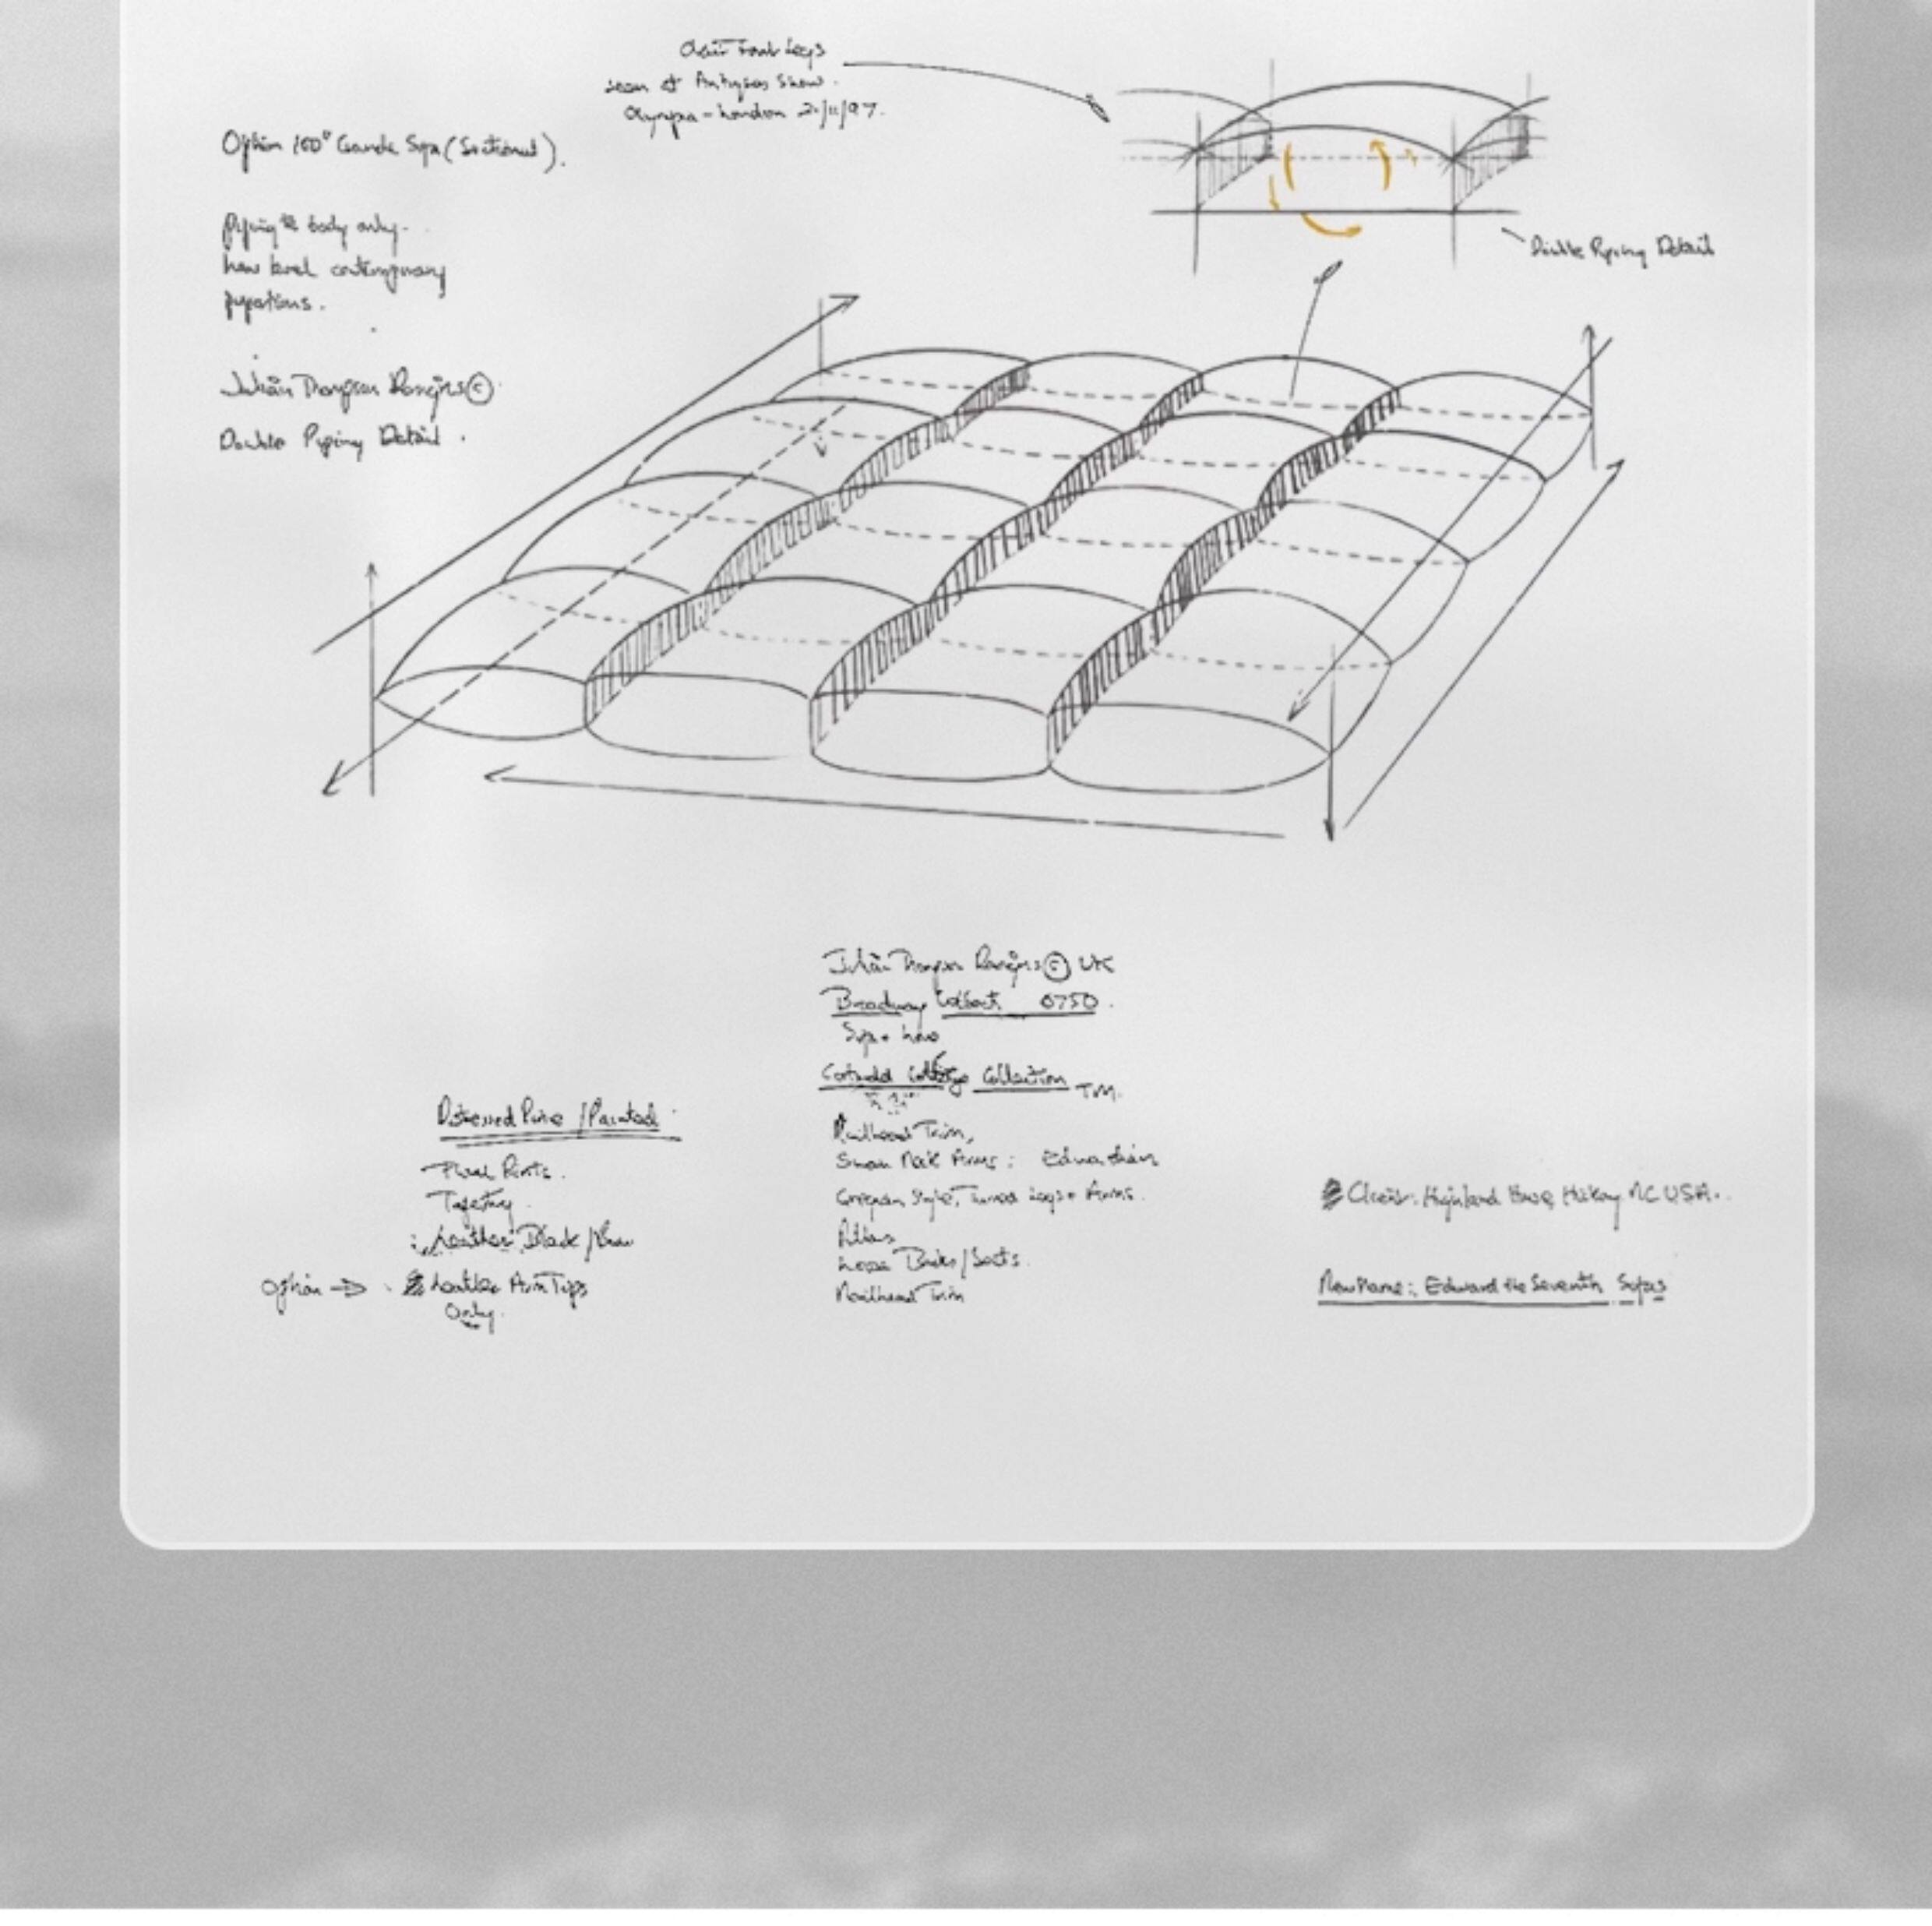 Chair Front Legs
seen at Antiques Show.
Olympia - London 21/11/97.
Option 100" Grande Sofa (Sectional).
Piping to body only -
contemporary
Julian Thompson Designs ©
Double Piping Detail.
Double Piping Detail
Julian Thompson Designs © UK
Broadway Collect. 0750.
Cotswold Cottage Collection TM.
Distressed Pine / Painted
Nailhead Trim,
Swan Neck Arms: Edwardian
Style, Turned Legs + Arms.
Floral Prints.
Tapestry.
Leather Black /
Pillows
Loose Backs/Seats.
Nailhead Trim
Option → Leather Arm Tips
Only.
Client: Highland House, Hickory NC USA.
New Name: Edward the Seventh Sofas